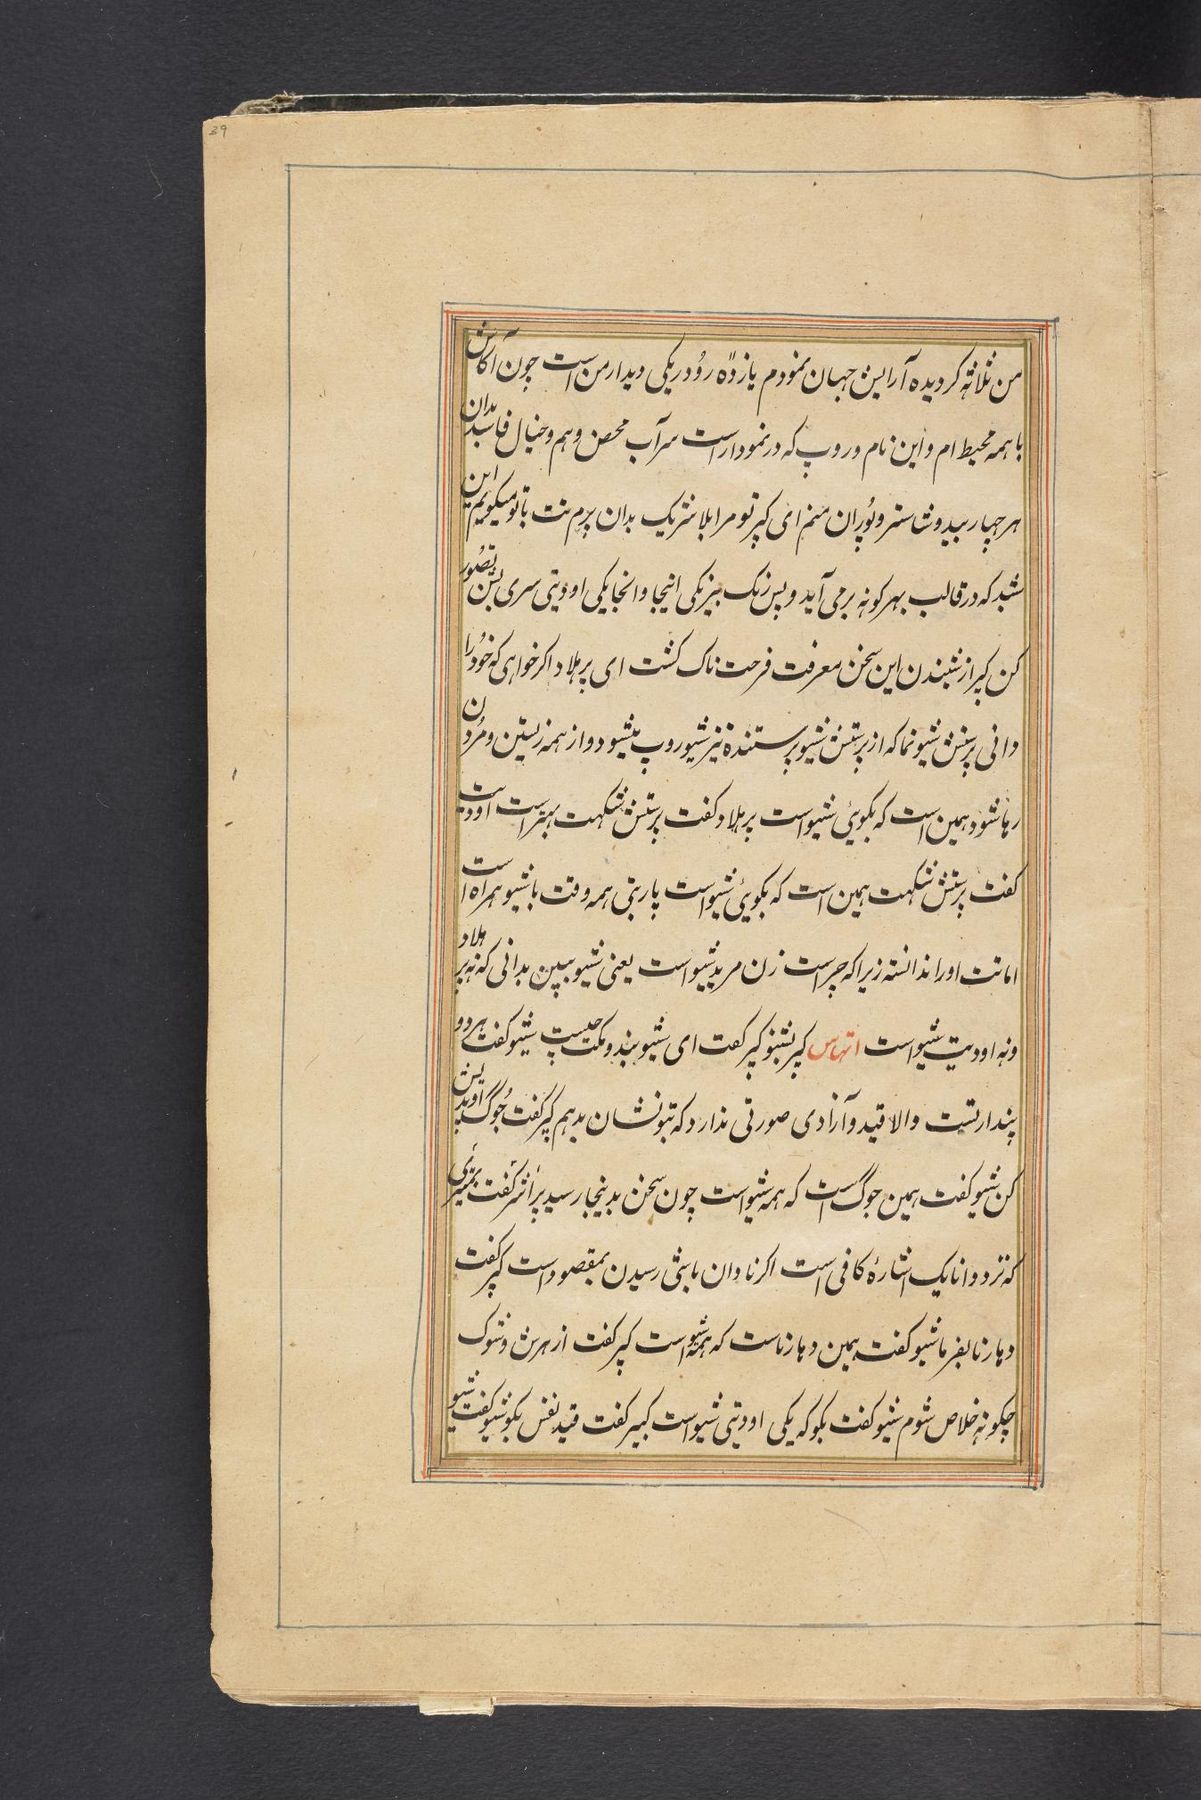 39
من ثلاثه کردیده آرایش جهان نمودم یازده رودر یکی دیدار من است چون آکاش
با همه محیط ام و این نام و روپ که در نمودار است سرآب محض و هم و خیال فاسد بدان
هر چهار بید و شاستر و پوران منم ای کپر تو مرا بلا شریک بدان پرم تت با تو میکویم این
شبد که در قالب بهر کونه برمی آید و پس رنک بیرنکی اینجا و انجا یکی اودیتی سری بشن تصور
کن کپر از شنیدن این سخن معرفت فرحت ناک کشت ای پرهلاد اکر خواهی که خود را
دانی پرستش شیو نما که از پرستش شیو پرستنده نیز شیو روپ میشود و از همه زیستن و مردن
رها شود همین است که بکوئی شیو است پرهلاد کفت پرستش شکهت بهتر است اودیت
کفت پرستش شکهت همین است که بکوئی شیو است پاربتی همه وقت با شیو همراه است
اما تت او را ندانسته زیرا که چراست زن مرید شیو است یعنی شیو ببین بدانی که نه پرهلاد
و نه اودیت شیو است اتهاس کپر بشنو کپر کفت ای شیو بند و مکت چیست شیو کفت هر دو
پندار تست والا قید و آزادی صورتی ندارد که بتو نشان بدهم کپر کفت جوک اوپدیش
کن شیو کفت همین جوک است که همه شیو است چون سخن بدینجا رسید پراشر کفت میتری
که نزد دانا یک اشاره کافی است اکر نادان باشی رسیدن بمقصود است کپر کفت
دهارنا بفرما شیو کفت همین دهارناست که همه شیو است کپر کفت از هرش و شوک
چکونه خلاص شوم شیو کفت بکو که یکی اودیتی شیو است کبیر کفت قید نفس بکو شیو کفت شیو